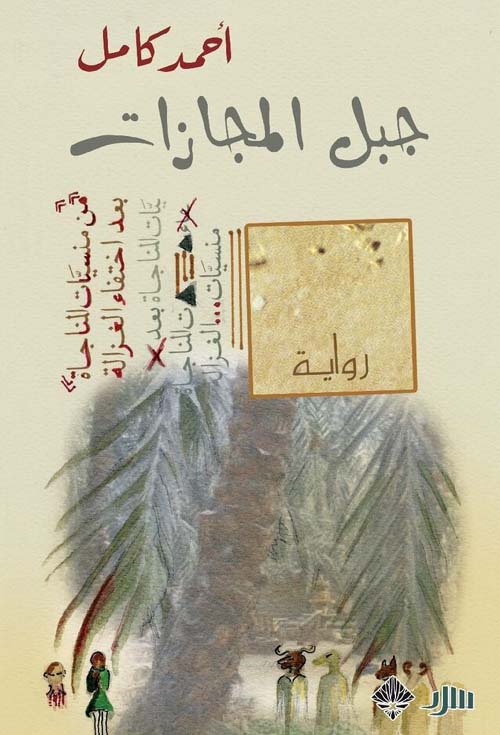 أحمد كامل
جبل المجازات
رواية
"مِن منسيَّات المناجاة
بعد اختفاء الغزالة"
يَّات المناجاة بعد
ت المناجاة
منسيَّات... الغزال
سرد